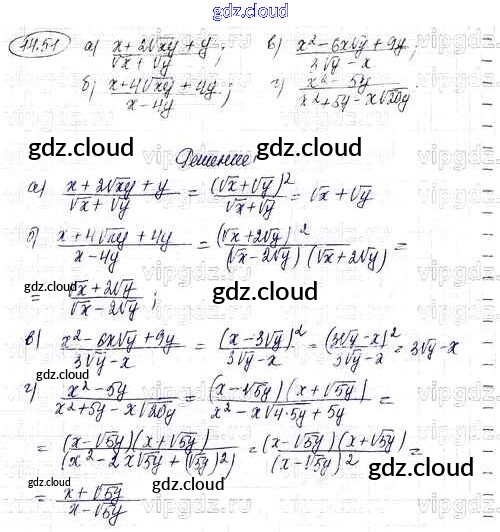 gdz.cloud
14.51 а) (x + 2√xy + y)/(√x + √y); в) (x² - 6x√y + 9y)/(3√y - x);
б) (x + 4√xy + 4y)/(x - 4y); г) (x² - 5y)/(x² + 5y - x√20y)
gdz.cloud gdz.cloud
Решение:
gdz.cloud gdz.cloud
а) (x + 2√xy + y)/(√x + √y) = (√x + √y)²/(√x + √y) = √x + √y
б) (x + 4√xy + 4y)/(x - 4y) = (√x + 2√y)²/((√x - 2√y)(√x + 2√y)) =
= (√x + 2√y)/(√x - 2√y);
gdz.cloud
в) (x² - 6x√y + 9y)/(3√y - x) = (x - 3√y)²/(3√y - x) = (3√y - x)²/(3√y - x) = 3√y - x
gdz.cloud gdz.cloud
г) (x² - 5y)/(x² + 5y - x√20y) = (x - √5y)(x + √5y)/(x² - x√4·5y + 5y) =
= (x - √5y)(x + √5y)/(x² - 2x√5y + (√5y)²) = (x - √5y)(x + √5y)/(x - √5y)² =
gdz.cloud gdz.cloud
= (x + √5y)/(x - √5y)
gdz.cloud